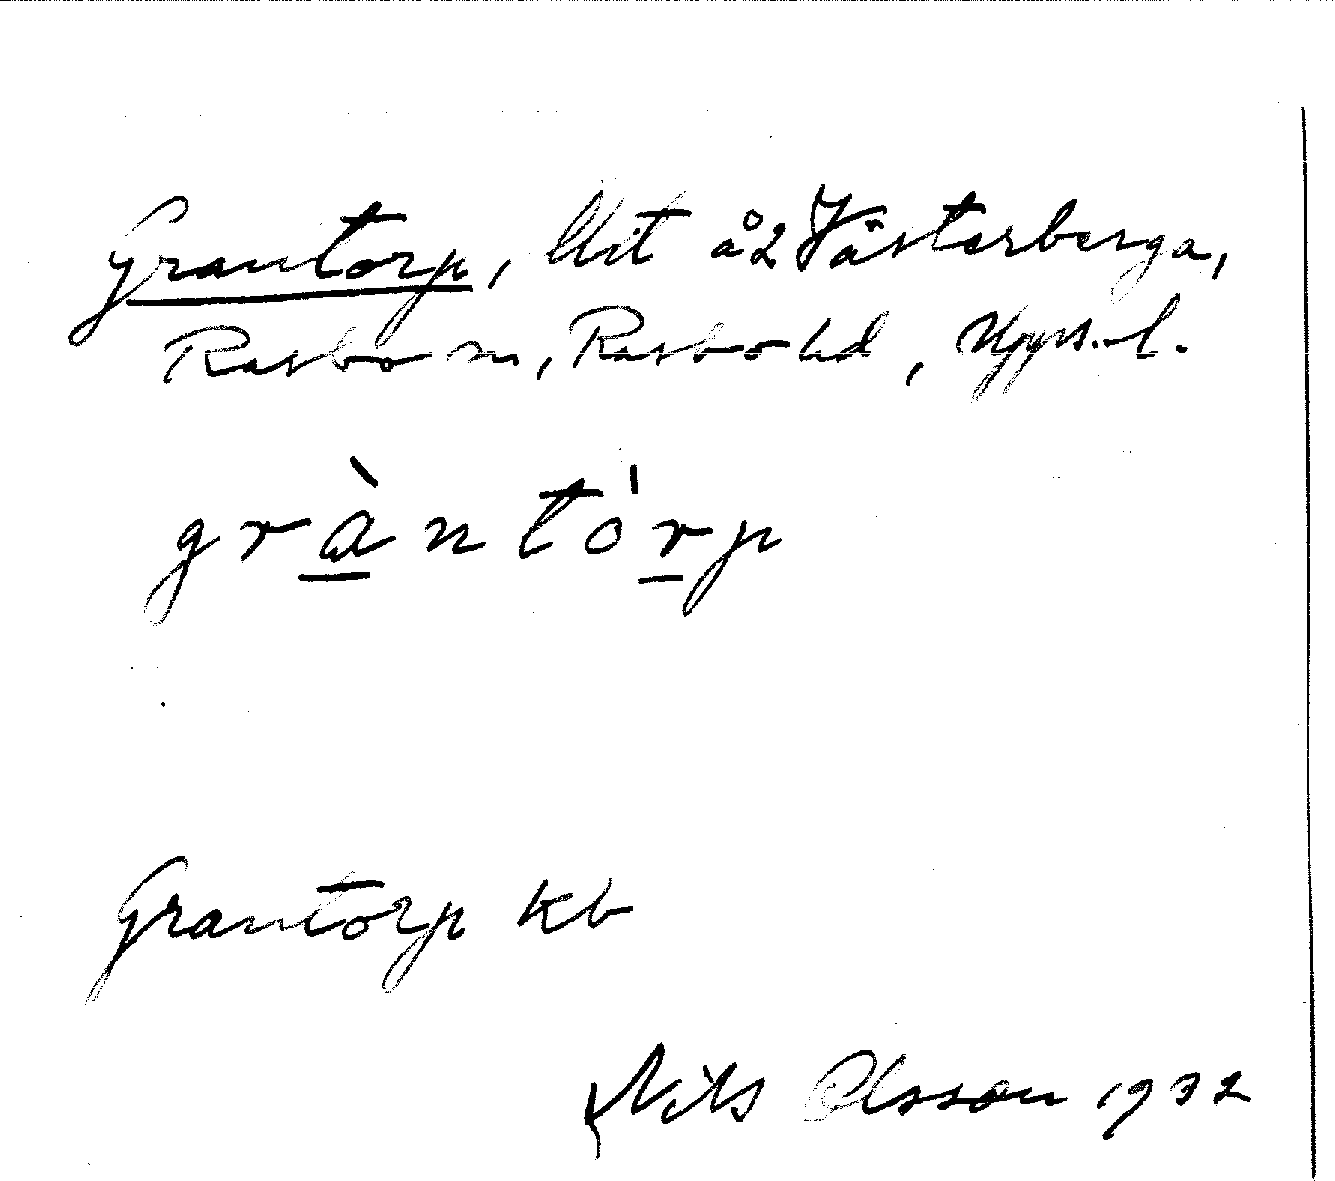 Grantorp, litt å2 Västerberga,
Rasbo sn, Rasbo hd, Upps. l.
gràntórp
Grantorp kb
Nils Olsson 1932